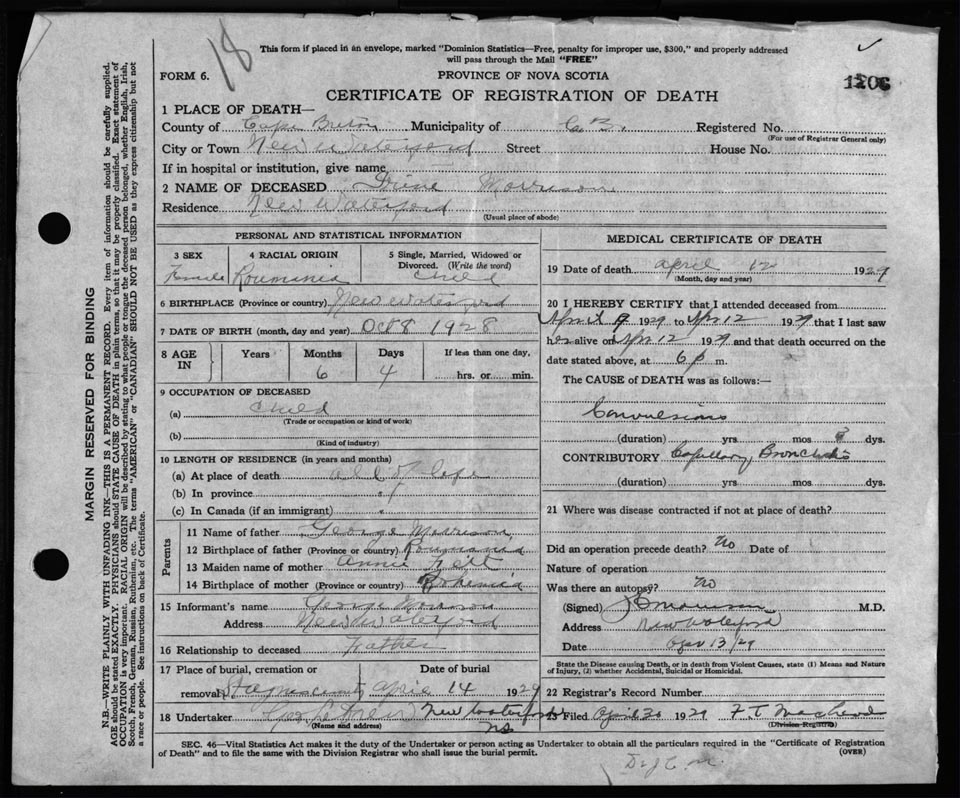 18
This form if placed in an envelope, marked "Dominion Statistics—Free, penalty for improper use, $300," and properly addressed
will pass through the Mail "FREE"
1206
FORM 6.
PROVINCE OF NOVA SCOTIA
CERTIFICATE OF REGISTRATION OF DEATH
MARGIN RESERVED FOR BINDING
N.B.—WRITE PLAINLY WITH UNFADING INK—THIS IS A PERMANENT RECORD. Every item of information should be carefully supplied.
AGE should be stated EXACTLY. PHYSICIANS should STATE CAUSE OF DEATH in plain terms so that it may be properly classified. Exact statement of
OCCUPATION is very important. RACIAL ORIGIN will be described by stating to what people or tongue the deceased person belonged, whether English, Irish,
Scotch, French, German, Russian, Ruthenian, etc. The terms "AMERICAN" or "CANADIAN" SHOULD NOT BE USED as they express citizenship but not
a race or people. See instructions on back of Certificate.
1 PLACE OF DEATH—
County of Cape Breton Municipality of C. B. Registered No.
(For use of Registrar General only)
City or Town New Waterford Street House No.
If in hospital or institution, give name
2 NAME OF DECEASED Morrison
Residence New Waterford
(Usual place of abode)
PERSONAL AND STATISTICAL INFORMATION
3 SEX Female
4 RACIAL ORIGIN Roumania
5 Single, Married, Widowed or
Divorced. (Write the word) Child
6 BIRTHPLACE (Province or country) New Waterford
7 DATE OF BIRTH (month, day and year) Oct 8 1928
8 AGE IN Years Months 6 Days 4 If less than one day,
hrs. or min.
9 OCCUPATION OF DECEASED
(a) Child
(Trade or occupation or kind of work)
(b)
(Kind of industry)
10 LENGTH OF RESIDENCE (in years and months)
(a) At place of death all of life
(b) In province "
(c) In Canada (if an immigrant) "
Parents
11 Name of father George Morrison
12 Birthplace of father (Province or country)
13 Maiden name of mother Annie
14 Birthplace of mother (Province or country) Bohemia
15 Informant's name George Morrison
Address New Waterford
16 Relationship to deceased Father
17 Place of burial, cremation or Date of burial
removal April 14 1929
18 Undertaker New Waterford
(Name and address) NS
MEDICAL CERTIFICATE OF DEATH
19 Date of death April 12 1929
(Month, day and year)
20 I HEREBY CERTIFY that I attended deceased from
April 9 1929 to Apr 12 1929 that I last saw
her alive on Apr 12 1929 and that death occurred on the
date stated above, at 6 p m.
The CAUSE of DEATH was as follows:—
Convulsions
(duration) yrs mos dys.
CONTRIBUTORY Capillary Bronchitis
(duration) yrs mos dys.
21 Where was disease contracted if not at place of death?
Did an operation precede death? No Date of
Nature of operation
Was there an autopsy? No
(Signed) Morrison M.D.
Address New Waterford
Date Apr 13/29
State the Disease causing Death, or in death from Violent Causes, state (1) Means and Nature
of Injury, (2) whether Accidental, Suicidal or Homicidal.
22 Registrar's Record Number
23 Filed April 30 1929
(Division Registrar)
SEC. 46—Vital Statistics Act makes it the duty of the Undertaker or person acting as Undertaker to obtain all the particulars required in the "Certificate of Registration
of Death" and to file the same with the Division Registrar who shall issue the burial permit. (OVER)